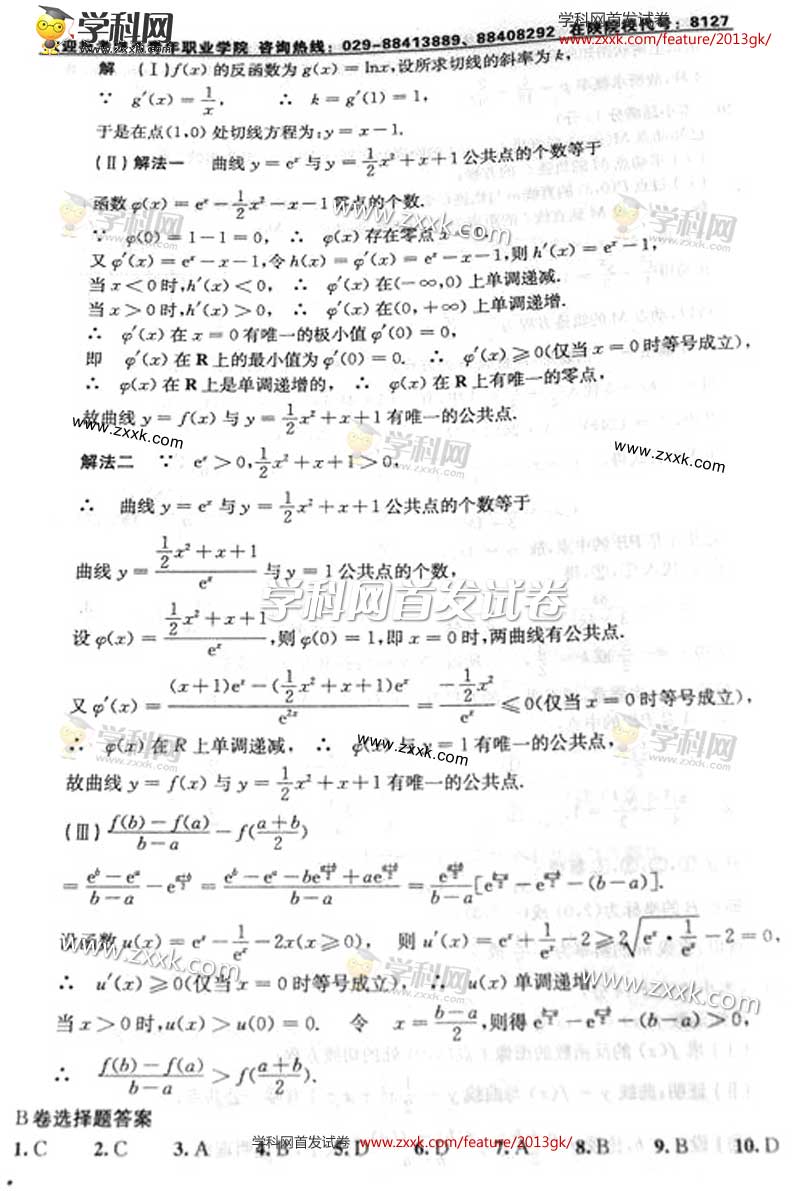 学科网首发试卷
www.zxxk.com/feature/2013gk/
年职业学院 咨询热线：029-88413889、88408292 在陕院校代号：8127
解 （Ⅰ）f(x) 的反函数为 g(x) = lnx，设所求切线的斜率为 k，
∵ g′(x) = 1/x， ∴ k = g′(1) = 1，
于是在点(1,0) 处切线方程为：y = x − 1.
（Ⅱ）解法一 曲线 y = eˣ 与 y = 1/2 x² + x + 1 公共点的个数等于
函数 φ(x) = eˣ − 1/2 x² − x − 1 零点的个数.
∵ φ(0) = 1 − 1 = 0， ∴ φ(x) 存在零点
又 φ′(x) = eˣ − x − 1，令 h(x) = φ′(x) = eˣ − x − 1，则 h′(x) = eˣ − 1，
当 x < 0 时，h′(x) < 0， ∴ φ′(x) 在(−∞,0) 上单调递减.
当 x > 0 时，h′(x) > 0， ∴ φ′(x) 在(0,+∞) 上单调递增.
∴ φ′(x) 在 x = 0 有唯一的极小值 φ′(0) = 0，
即 φ′(x) 在 R 上的最小值为 φ′(0) = 0. ∴ φ′(x) ⩾ 0(仅当 x = 0 时等号成立)，
∴ φ(x) 在 R 上是单调递增的， ∴ φ(x) 在 R 上有唯一的零点，
故曲线 y = f(x) 与 y = 1/2 x² + x + 1 有唯一的公共点.
解法二 ∵ eˣ > 0，1/2 x² + x + 1 > 0，
∴ 曲线 y = eˣ 与 y = 1/2 x² + x + 1 公共点的个数等于
曲线 y = (1/2 x² + x + 1)/eˣ 与 y = 1 公共点的个数，
设 φ(x) = (1/2 x² + x + 1)/eˣ，则 φ(0) = 1，即 x = 0 时，两曲线有公共点.
又 φ′(x) = ((x+1)eˣ − (1/2 x² + x + 1)eˣ)/e²ˣ = (−1/2 x²)/eˣ ⩽ 0(仅当 x = 0 时等号成立)，
∴ φ(x) 在 R 上单调递减， ∴ φ(x) 与 y = 1 有唯一的公共点，
故曲线 y = f(x) 与 y = 1/2 x² + x + 1 有唯一的公共点.
（Ⅲ）(f(b) − f(a))/(b − a) − f((a+b)/2)
= (e^b − e^a)/(b − a) − e^((a+b)/2) = (e^b − e^a − be^((a+b)/2) + ae^((a+b)/2))/(b − a) = e^((a+b)/2)/(b − a) [e^((b−a)/2) − e^((a−b)/2) − (b − a)].
设函数 u(x) = eˣ − 1/eˣ − 2x(x ⩾ 0)， 则 u′(x) = eˣ + 1/eˣ − 2 ⩾ 2√(eˣ · 1/eˣ) − 2 = 0，
∴ u′(x) ⩾ 0(仅当 x = 0 时等号成立)， ∴ u(x) 单调递增.
当 x > 0 时，u(x) > u(0) = 0. 令 x = (b−a)/2，则得 e^((b−a)/2) − e^((a−b)/2) − (b − a) > 0，
∴ (f(b) − f(a))/(b − a) > f((a+b)/2).
B卷选择题答案
1. C 2. C 3. A 4. B 5. D 6. D 7. A 8. B 9. B 10. D
学科网首发试卷 www.zxxk.com/feature/2013gk/
学科网 zxxk.com
www.zxxk.com
学科网首发试卷